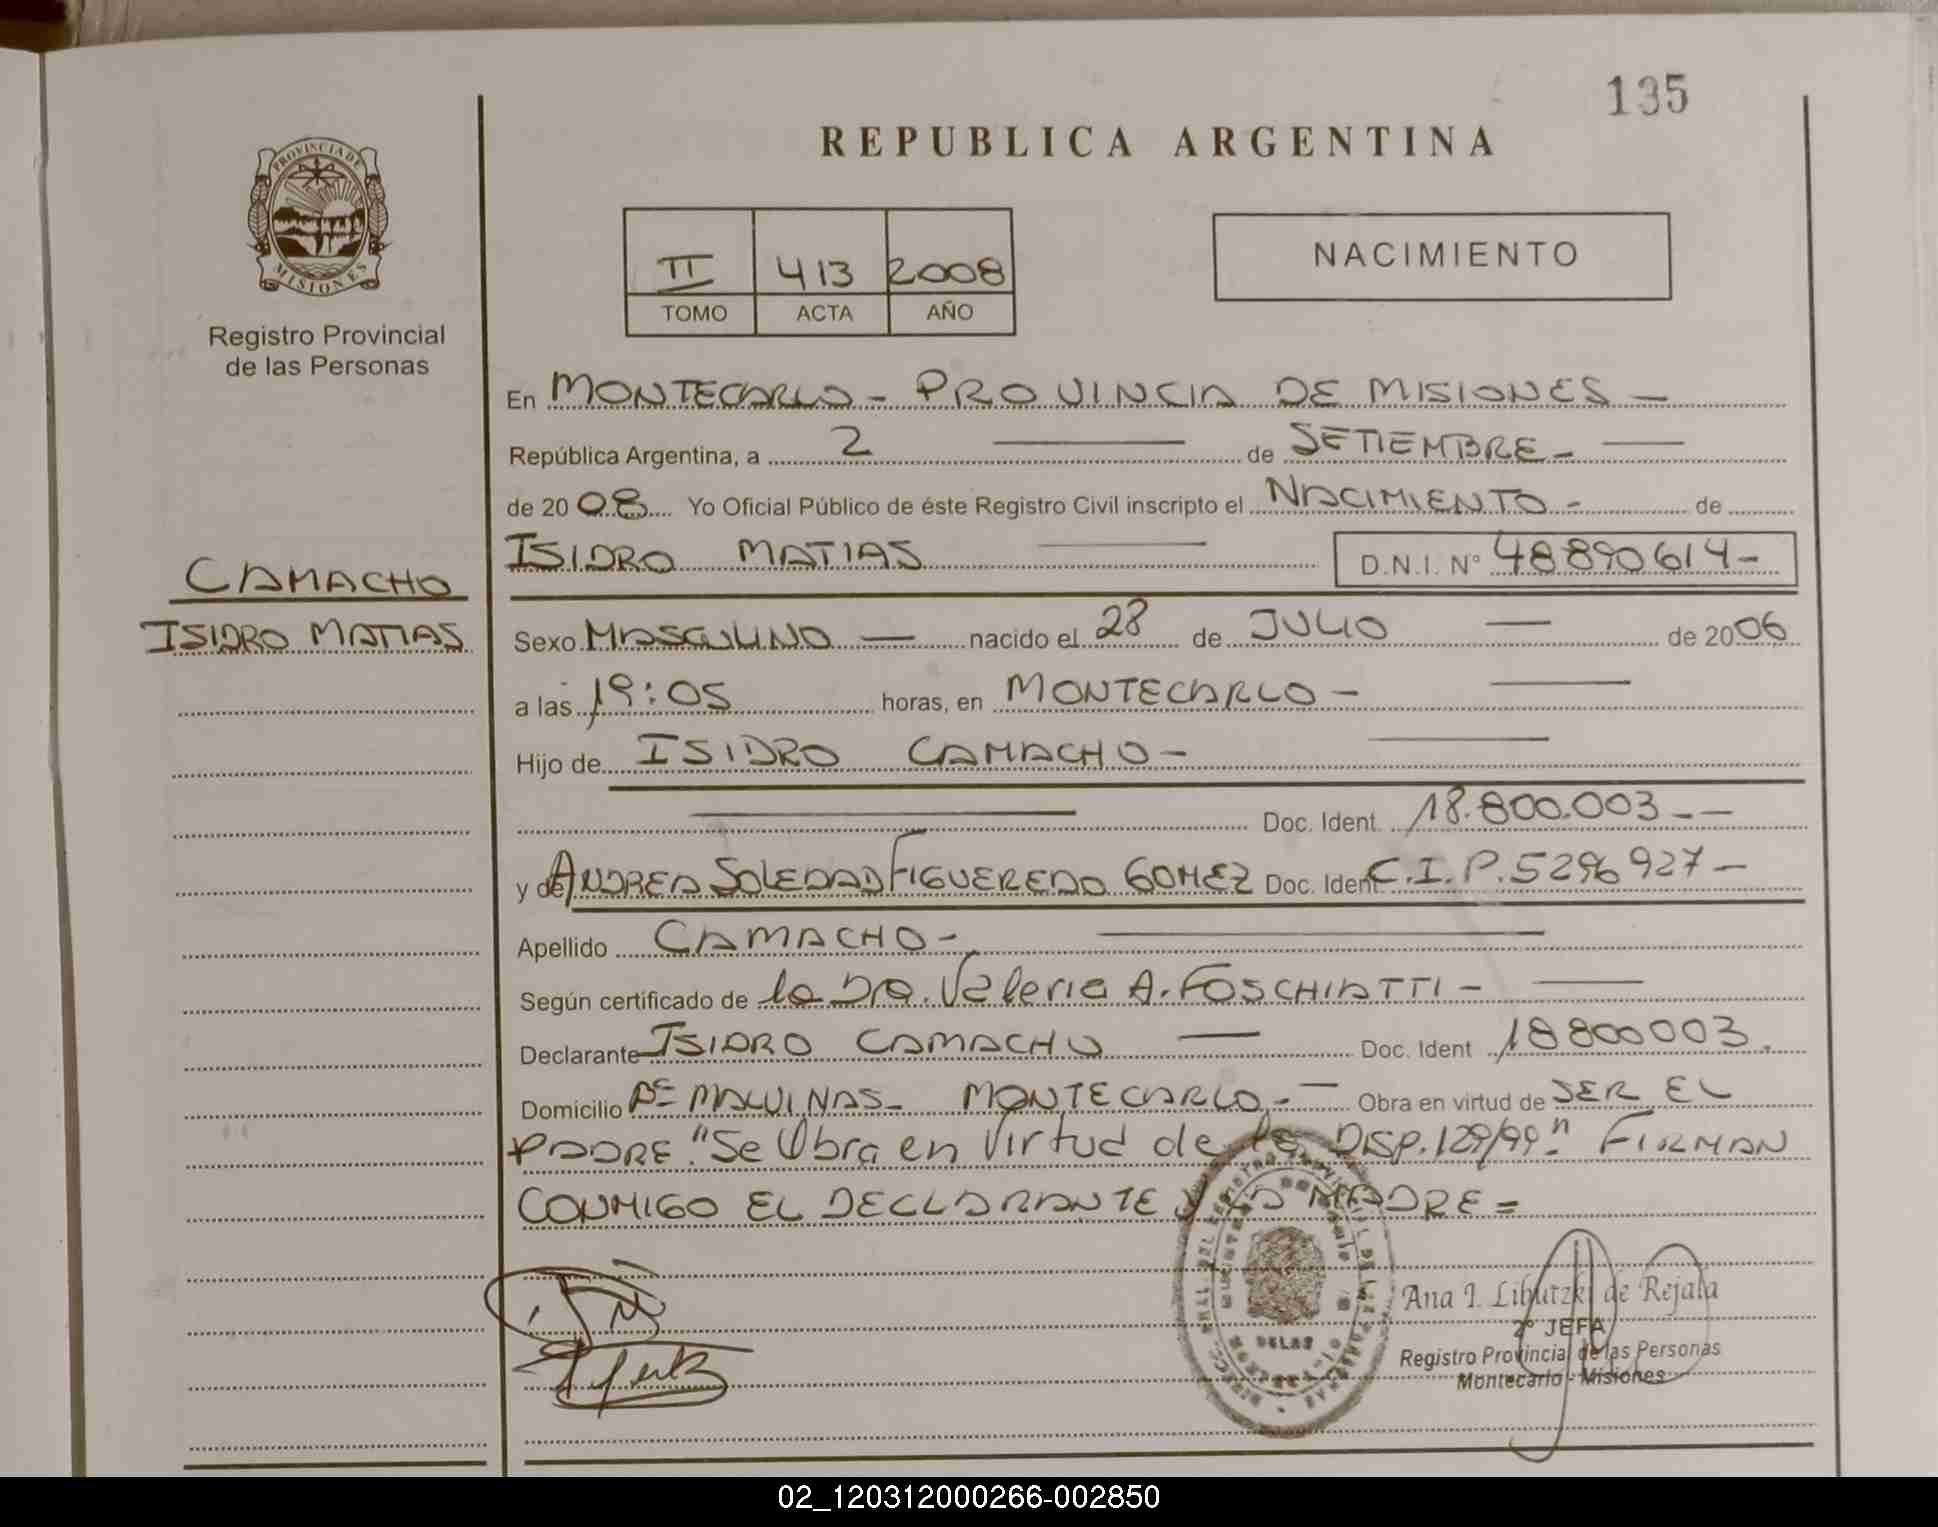 135
REPUBLICA ARGENTINA
PROVINCIA DE
MISIONES
Registro Provincial
de las Personas
II 413 2008
TOMO ACTA AÑO
NACIMIENTO
En MONTECARLO - PROVINCIA DE MISIONES -
República Argentina, a 2 de SETIEMBRE -
de 2008 Yo Oficial Público de éste Registro Civil inscripto el NACIMIENTO - de
ISIDRO MATIAS D.N.I. N° 48890614-
CAMACHO
ISIDRO MATIAS
Sexo MASCULINO — nacido el 28 de JULIO — de 2006
a las 19:05 horas, en MONTECARLO -
Hijo de ISIDRO CAMACHO -
Doc. Ident. 18.800.003 - -
y de ANDREA SOLEDAD FIGUEREDO GOMEZ Doc. Ident C.I.P. 5296927 -
Apellido CAMACHO -
Según certificado de la Dra. Valeria A. FOSCHIATTI -
Declarante ISIDRO CAMACHO — Doc. Ident 18800003.
Domicilio Bº MALVINAS - MONTECARLO - Obra en virtud de SER EL
PADRE. "Se Obra en Virtud de la DISP. 129/99." FIRMAN
CONMIGO EL DECLARANTE Y LA MADRE =
Ana I. Lihutzki de Rejala
2º JEFA
Registro Provincial de las Personas
Montecarlo - Misiones
02_120312000266-002850